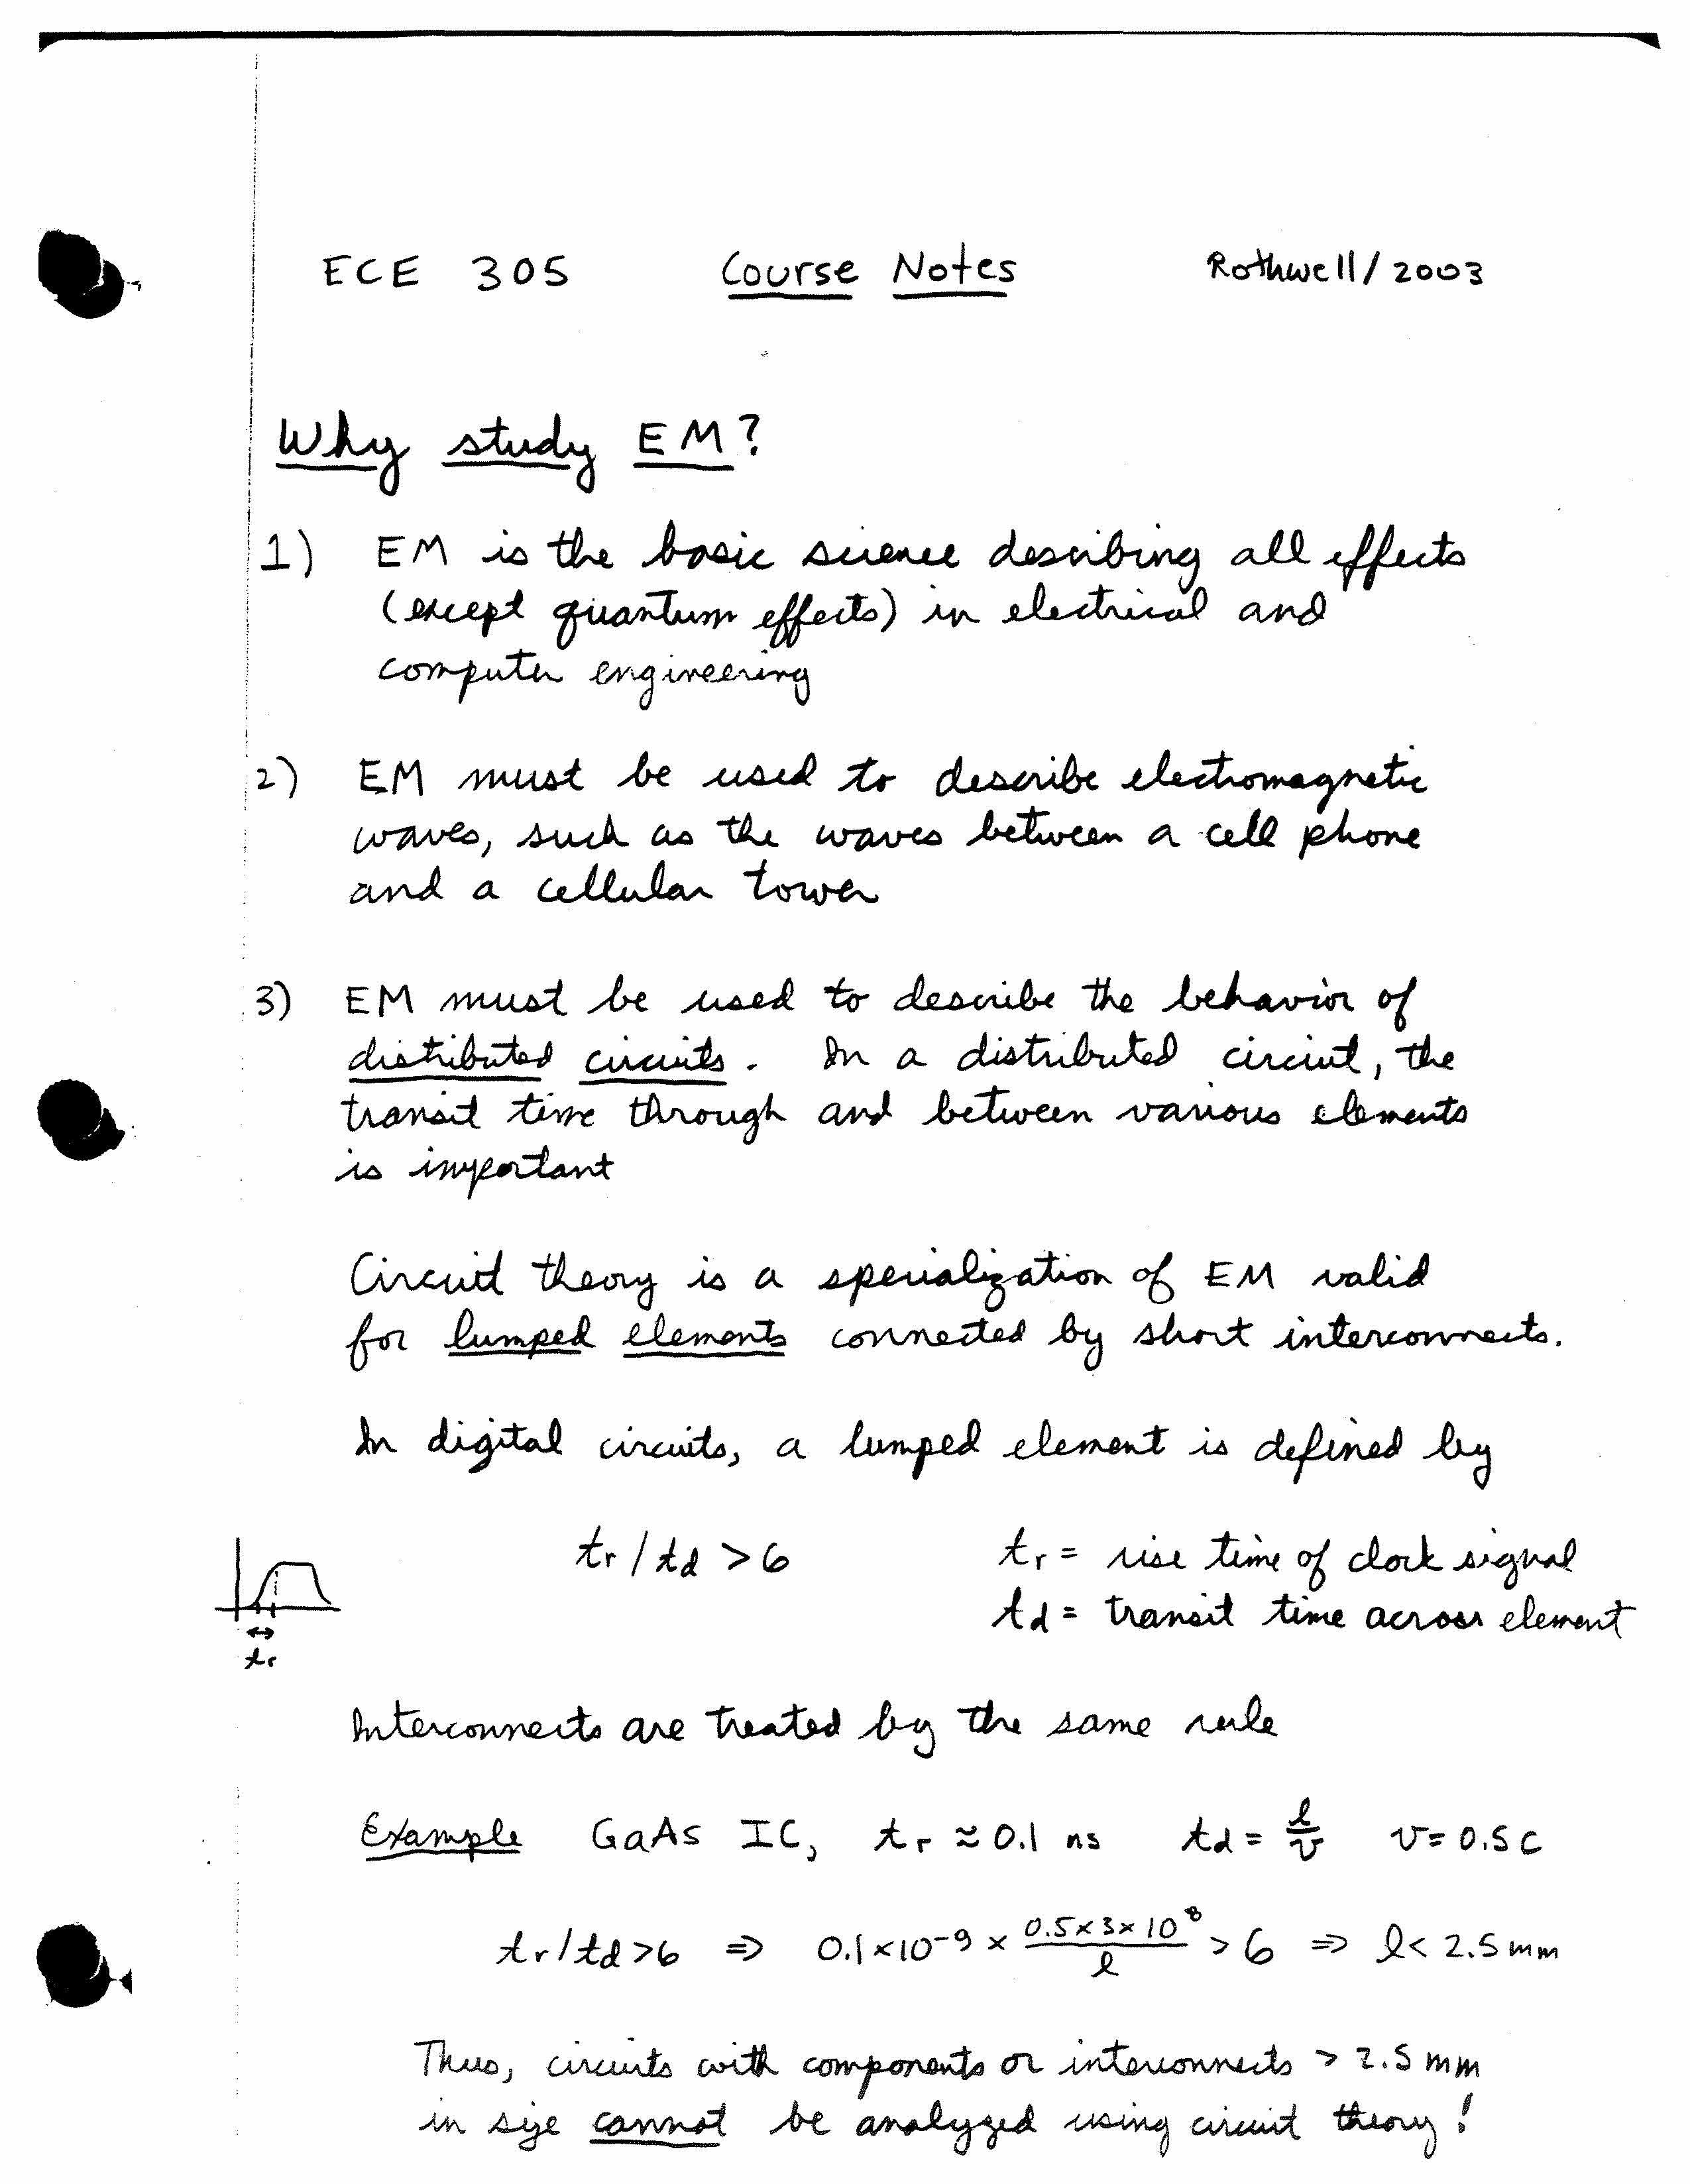 ECE 305 Course Notes Rothwell/2003
Why study EM?
1) EM is the basic science describing all effects
(except quantum effects) in electrical and
computer engineering
2) EM must be used to describe electromagnetic
waves, such as the waves between a cell phone
and a cellular tower
3) EM must be used to describe the behavior of
distributed circuits. In a distributed circuit, the
transit time through and between various elements
is important
Circuit theory is a specialization of EM valid
for lumped elements connected by short interconnects.
In digital circuits, a lumped element is defined by
tr / td > 6 tr = rise time of clock signal
td = transit time across element
tr
Interconnects are treated by the same rule
Example GaAs IC, tr ≈ 0.1 ns td = l/v v = 0.5c
tr/td > 6 ⇒ 0.1×10⁻⁹ × 0.5×3×10⁸/l > 6 ⇒ l < 2.5 mm
Thus, circuits with components or interconnects > 2.5 mm
in size cannot be analyzed using circuit theory!